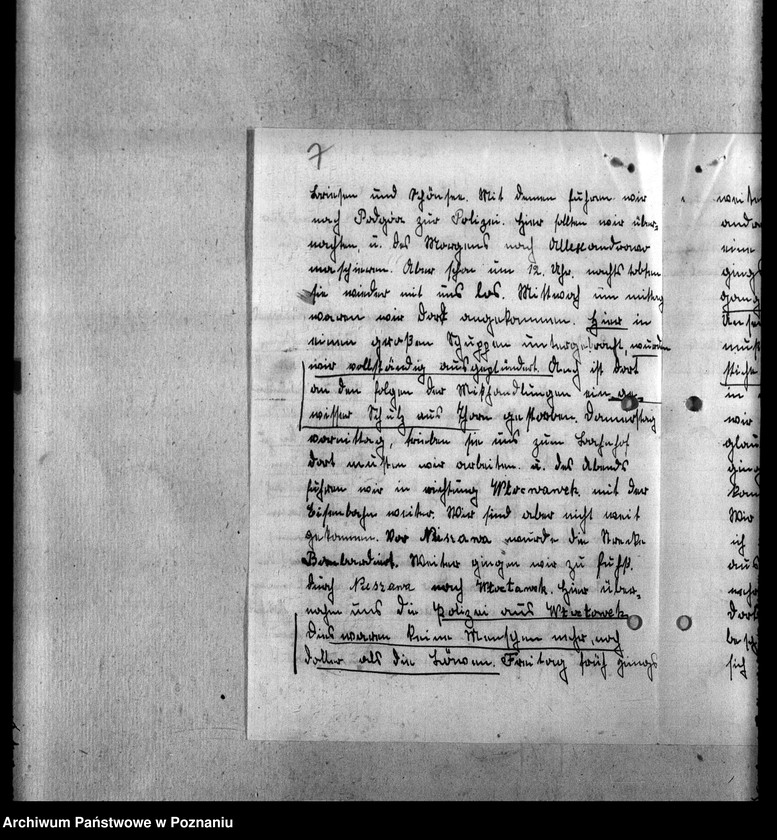 7
Briesen und Schönsee. Mit denen fuhren wir
nach Podgorz zur Polizei. Hier sollten wir über-
nachten u. des Morgens nach Allexandrowo
maschieren. Aber schon um 12. Uhr. nachts tobten
sie wieder mit uns los. Mittwoch um mittag
waren wir dort angekommen. Hier in
einen großen Schuppen untergebracht, wurden
wir vollständig ausgeplündert. Auch ist dort
an den folgen der Mißhandlungen ein ge-
wisser Schulz aus Thorn gestorben. Dannerstag
vormittag, trieben sie uns zum Bachnhof
dort mußten wir arbeiten. u. des Abends
fuhren wir in richtung Wlocwawek mit der
Eisenbahn weiter. Wir sind aber nicht weit
gekommen. Vor Nieszawa wurde die Strecke
Bombardiert. Weiter gingen wir zu fuhß.
durch Nieszawa nach Wlotawek. Hier über-
nahm uns die Polizei aus Wlotawek
Dies waren keine Menschen mehr, noch
doller als die Löwen. Freitag früh gings
Archiwum Państwowe w Poznaniu